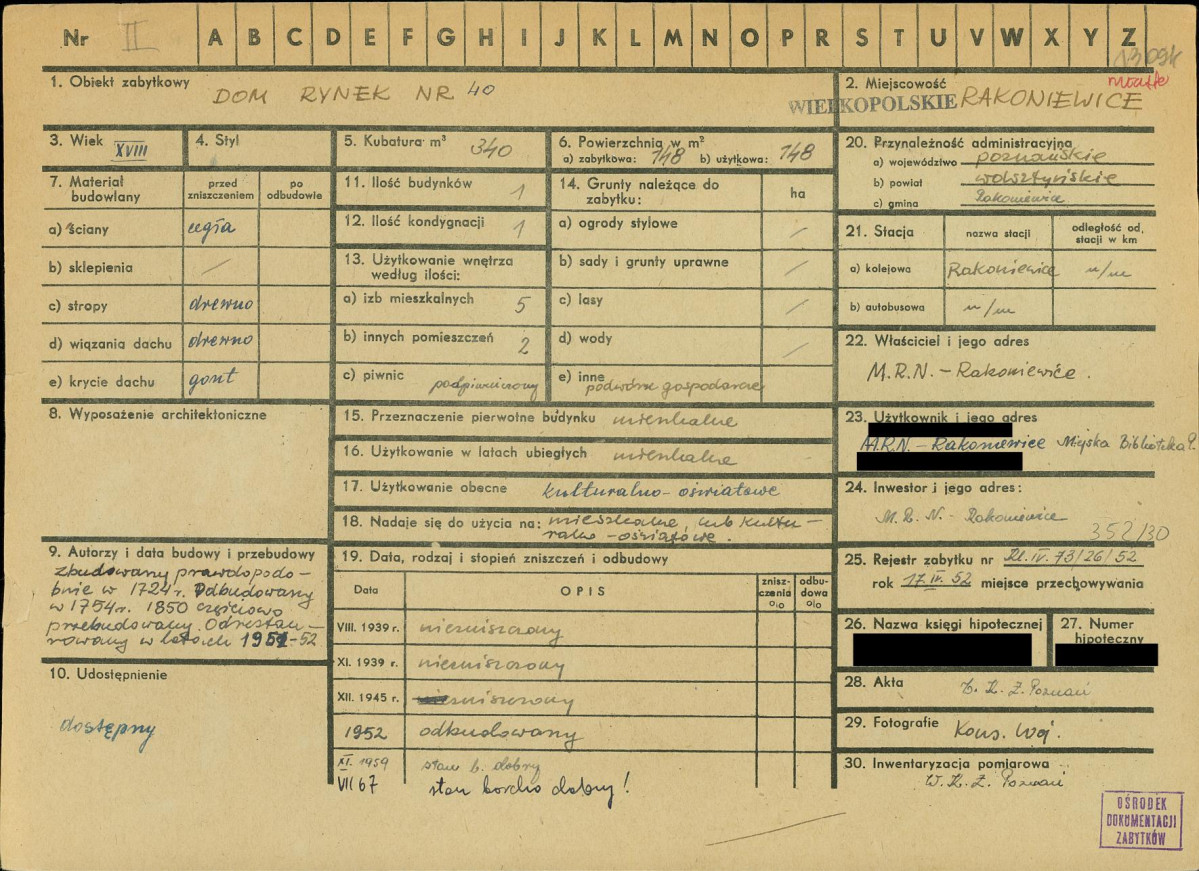 Nr II A B C D E F G H I J K L M N O P R S T U V W X Y Z
1. Obiekt zabytkowy
DOM RYNEK NR 40
2. Miejscowość
WIELKOPOLSKIE RAKONIEWICE
3. Wiek XVIII
4. Styl
5. Kubatura m³ 340
6. Powierzchnia w m²
a) zabytkowa: 148 b) użytkowa: 148
7. Materiał budowlany
przed zniszczeniem
po odbudowie
a) ściany cegła
b) sklepienia /
c) stropy drewno
d) wiązania dachu drewno
e) krycie dachu gont
8. Wyposażenie architektoniczne
9. Autorzy i data budowy i przebudowy
zbudowany prawdopodo-
bnie w 1724 r. Odbudowany
w 1754 r. 1850 częściowo
przebudowany. Odrestau-
rowany w latach 1951-52
10. Udostępnienie
dostępny
11. Ilość budynków 1
12. Ilość kondygnacji 1
13. Użytkowanie wnętrza
według ilości:
a) izb mieszkalnych 5
b) innych pomieszczeń 2
c) piwnic podpiwniczony
14. Grunty należące do
zabytku:
ha
a) ogrody stylowe /
b) sady i grunty uprawne /
c) lasy /
d) wody /
e) inne
podwórze gospodarcze
15. Przeznaczenie pierwotne budynku mieszkalne
16. Użytkowanie w latach ubiegłych mieszkalne
17. Użytkowanie obecne kulturalno-oświatowe
18. Nadaje się do użycia na: mieszkalne, lub kultu-
ralno-oświatowe.
19. Data, rodzaj i stopień zniszczeń i odbudowy
Data
OPIS
zniszczenia %
odbudowa %
VIII. 1939 r. niezniszczony
XI. 1939 r. niezniszczony
XII. 1945 r. zniszczony
1952 odbudowany
XI. 1959 stan b. dobry
VII 67 stan bardzo dobry!
20. Przynależność administracyjna
a) województwo poznańskie
b) powiat wolsztyński
c) gmina Rakoniewice
21. Stacja
nazwa stacji
odległość od stacji w km
a) kolejowa Rakoniewice n/m
b) autobusowa n/m
22. Właściciel i jego adres
M.R.N. - Rakoniewice.
23. Użytkownik i jego adres
M.R.N. - Rakoniewice Miejska Biblioteka P.
24. Inwestor i jego adres:
M.R.N - Rakoniewice
352/30
25. Rejestr zabytku nr Kl.IV.73/26/52
rok 17.IV.52 miejsce przechowywania
26. Nazwa księgi hipotecznej
27. Numer hipoteczny
28. Akta
29. Fotografie Kons. Woj.
30. Inwentaryzacja pomiarowa
W.K.Z. Poznań
OŚRODEK
DOKUMENTACJI
ZABYTKÓW